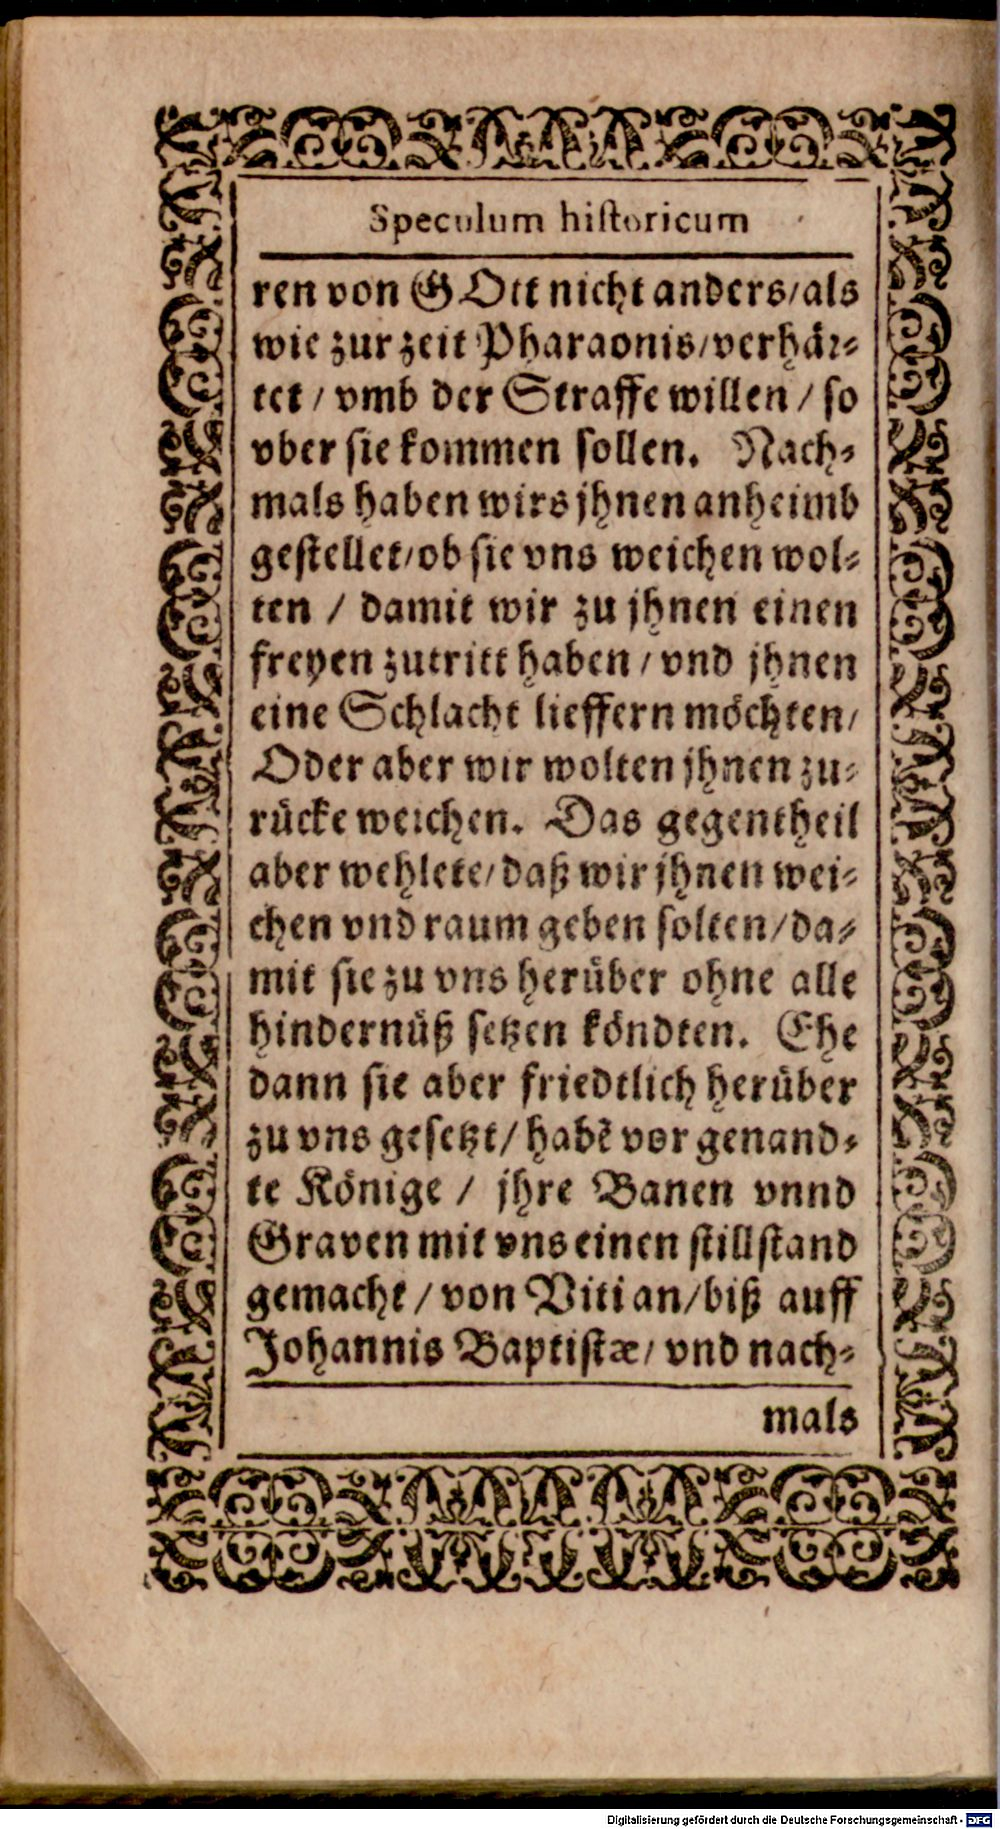 Speculum hiſtoricum
ren von GOtt nicht anders/als
wie zur zeit Pharaonis/verhär-
tet / vmb der Straffe willen / so
vber sie kommen sollen. Nach-
mals haben wirs jhnen anheimb
gestellet/ob sie vns weichen wol-
ten / damit wir zu jhnen einen
freyen zutritt haben / vnd jhnen
eine Schlacht lieffern möchten/
Oder aber wir wolten jhnen zu-
rücke weichen. Das gegentheil
aber wehlete/daß wir jhnen wei-
chen vnd raum geben solten/da-
mit sie zu vns herüber ohne alle
hindernüß setzen köndten. Ehe
dann sie aber friedtlich herüber
zu vns gesetzt/ habẽ vor genand-
te Könige / jhre Banen vnnd
Graven mit vns einen stillstand
gemacht / von Vitian/biß auff
Johannis Baptistæ/ vnd nach-
mals
Digitalisierung gefördert durch die Deutsche Forschungsgemeinschaft - DFG